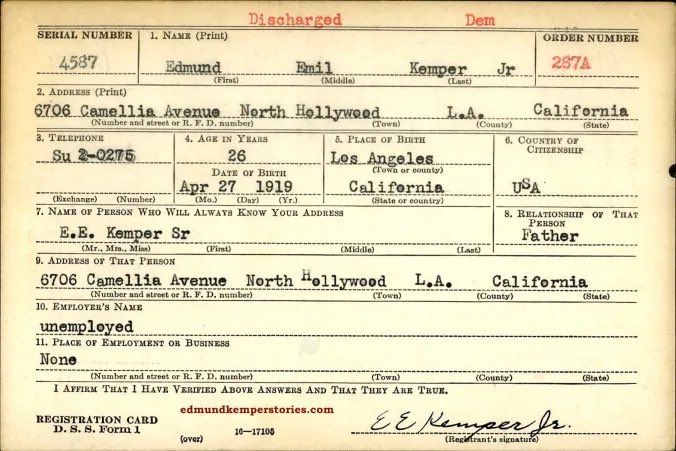 Discharged Dem
SERIAL NUMBER 1. NAME (Print) ORDER NUMBER
4587 Edmund Emil Kemper Jr 287A
(First) (Middle) (Last)
2. ADDRESS (Print)
6706 Camellia Avenue North Hollywood L.A. California
(Number and street or R. F. D. number) (Town) (County) (State)
3. TELEPHONE 4. AGE IN YEARS 5. PLACE OF BIRTH 6. COUNTRY OF CITIZENSHIP
Su 2-0275 26 Los Angeles
(Town or county)
DATE OF BIRTH
Apr 27 1919 California USA
(Exchange) (Number) (Mo.) (Day) (Yr.) (State or country)
7. NAME OF PERSON WHO WILL ALWAYS KNOW YOUR ADDRESS 8. RELATIONSHIP OF THAT PERSON
E.E. Kemper Sr Father
(Mr., Mrs., Miss) (First) (Middle) (Last)
9. ADDRESS OF THAT PERSON
6706 Camellia Avenue North Hollywood L.A. California
(Number and street or R. F. D. number) (Town) (County) (State)
10. EMPLOYER'S NAME
unemployed
11. PLACE OF EMPLOYMENT OR BUSINESS
None
(Number and street or R. F. D. number) (Town) (County) (State)
I AFFIRM THAT I HAVE VERIFIED ABOVE ANSWERS AND THAT THEY ARE TRUE.
edmundkemperstories.com
REGISTRATION CARD
D. S. S. Form 1 (over) 16—17105 E E Kemper Jr.
(Registrant's signature)